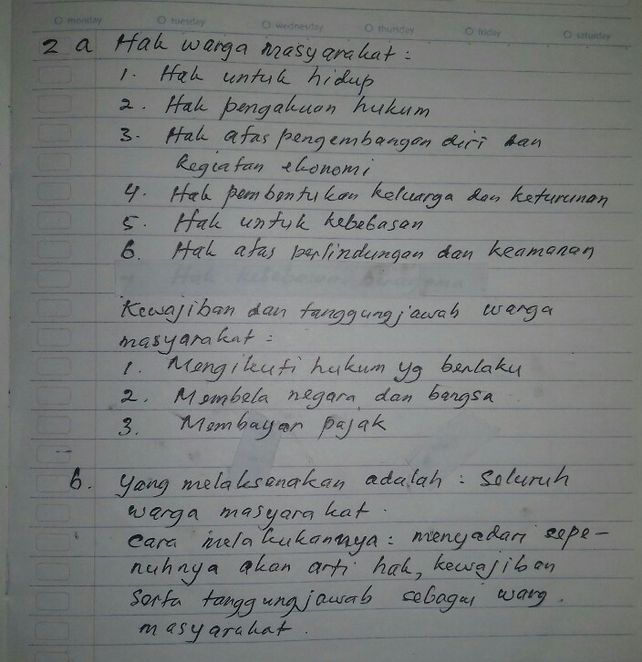 monday tuesday wednesday thursday friday saturday
2 a Hak warga masyarakat :
1. Hak untuk hidup
2. Hak pengakuan hukum
3. Hak atas pengembangan diri dan
kegiatan ekonomi
4. Hak pembentukan keluarga dan keturunan
5. Hak untuk kebebasan
6. Hak atas perlindungan dan keamanan
Kewajiban dan tanggung jawab warga
masyarakat :
1. Mengikuti hukum yg berlaku
2. Membela negara dan bangsa
3. Membayar pajak
b. Yang melaksanakan adalah : Seluruh
warga masyarakat.
Cara melakukannya : menyadari sepe-
nuhnya akan arti hak, kewajiban
serta tanggung jawab sebagai warg.
masyarakat.